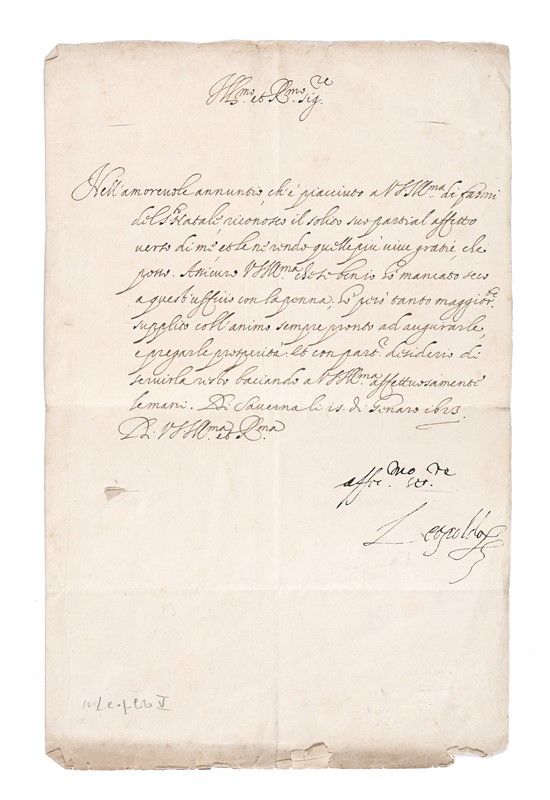 Ill.mo et R.mo Sig.re
Nell'amorevole annuntio, ch'è piacciuto a V.S.Ill.ma di farmi
del S. Natale, riconosco il solito suo partial affetto
verso di me, et le ne rendo quelle più vive gratie, che
posso. Assicuro V.S.Ill.ma che se ben io hò mancato seco
a quest'ufficio con la penna, hò però tanto maggior.te
supplito coll'animo sempre pronto ad augurarle,
e pregarle prosperità. Et con part.r desiderio di
servirla resto baciando a V.S.Ill.ma affettuosamente
le mani. Di Saverna li 15. di Genaro 1623.
Di V.S.Ill.ma et R.ma
aff.mo
Leopoldo